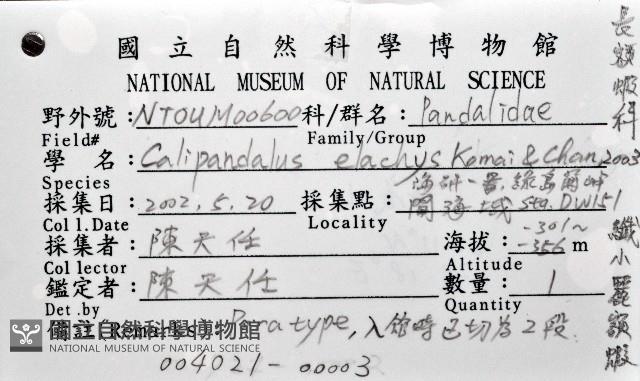 國立自然科學博物館
NATIONAL MUSEUM OF NATURAL SCIENCE
野外號:NTOUM00600 科/群名:Pandalidae
Field# Family/Group
學 名:Calipandalus elachys Komai & Chan, 2003
Species
海研一號,綠島蘭嶼
採集日:2002, 5, 20 採集點:間海域 Sta. DW151
Col l.Date Locality
採集者:陳天任 海拔:-301~-356 m
Col lector Altitude
鑑定者:陳天任 數量:1
Det.by Quantity
Paratype, 入館時已切為2段.
國立自然科學博物館
NATIONAL MUSEUM OF NATURAL SCIENCE
004021-00003
長額蝦科
纖小
額蝦